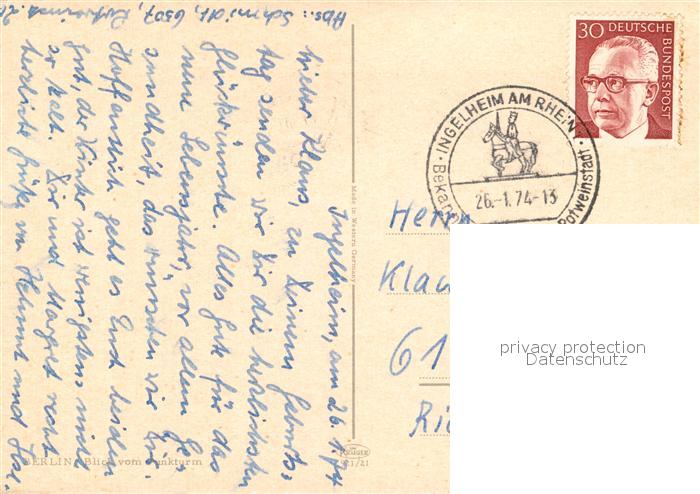 Abs.: Schmidt, 6507,
Ingelheim, am 26.1.74
Lieber Klaus, zu Deinem Geburts-
tag senden wir Dir die herzlichsten
Glückwünsche. Alles Gute für das
neue Lebensjahr, vor allem Ge-
sundheit, das wünschen wir Dir.
Hoffentlich geht es Euch beiden
gut, der Winter ist wenigstens nicht
so kalt. Dir und Margret recht
herzliche Grüße von Helmut und
BERLIN Blick vom Funkturm
Made in Western Germany
KRÜGER
30 DEUTSCHE
BUNDESPOST
INGELHEIM AM RHEIN
26.-1.74-13
Rotweinstadt
Herrn
Klau
61
Ri
privacy protection
Datenschutz